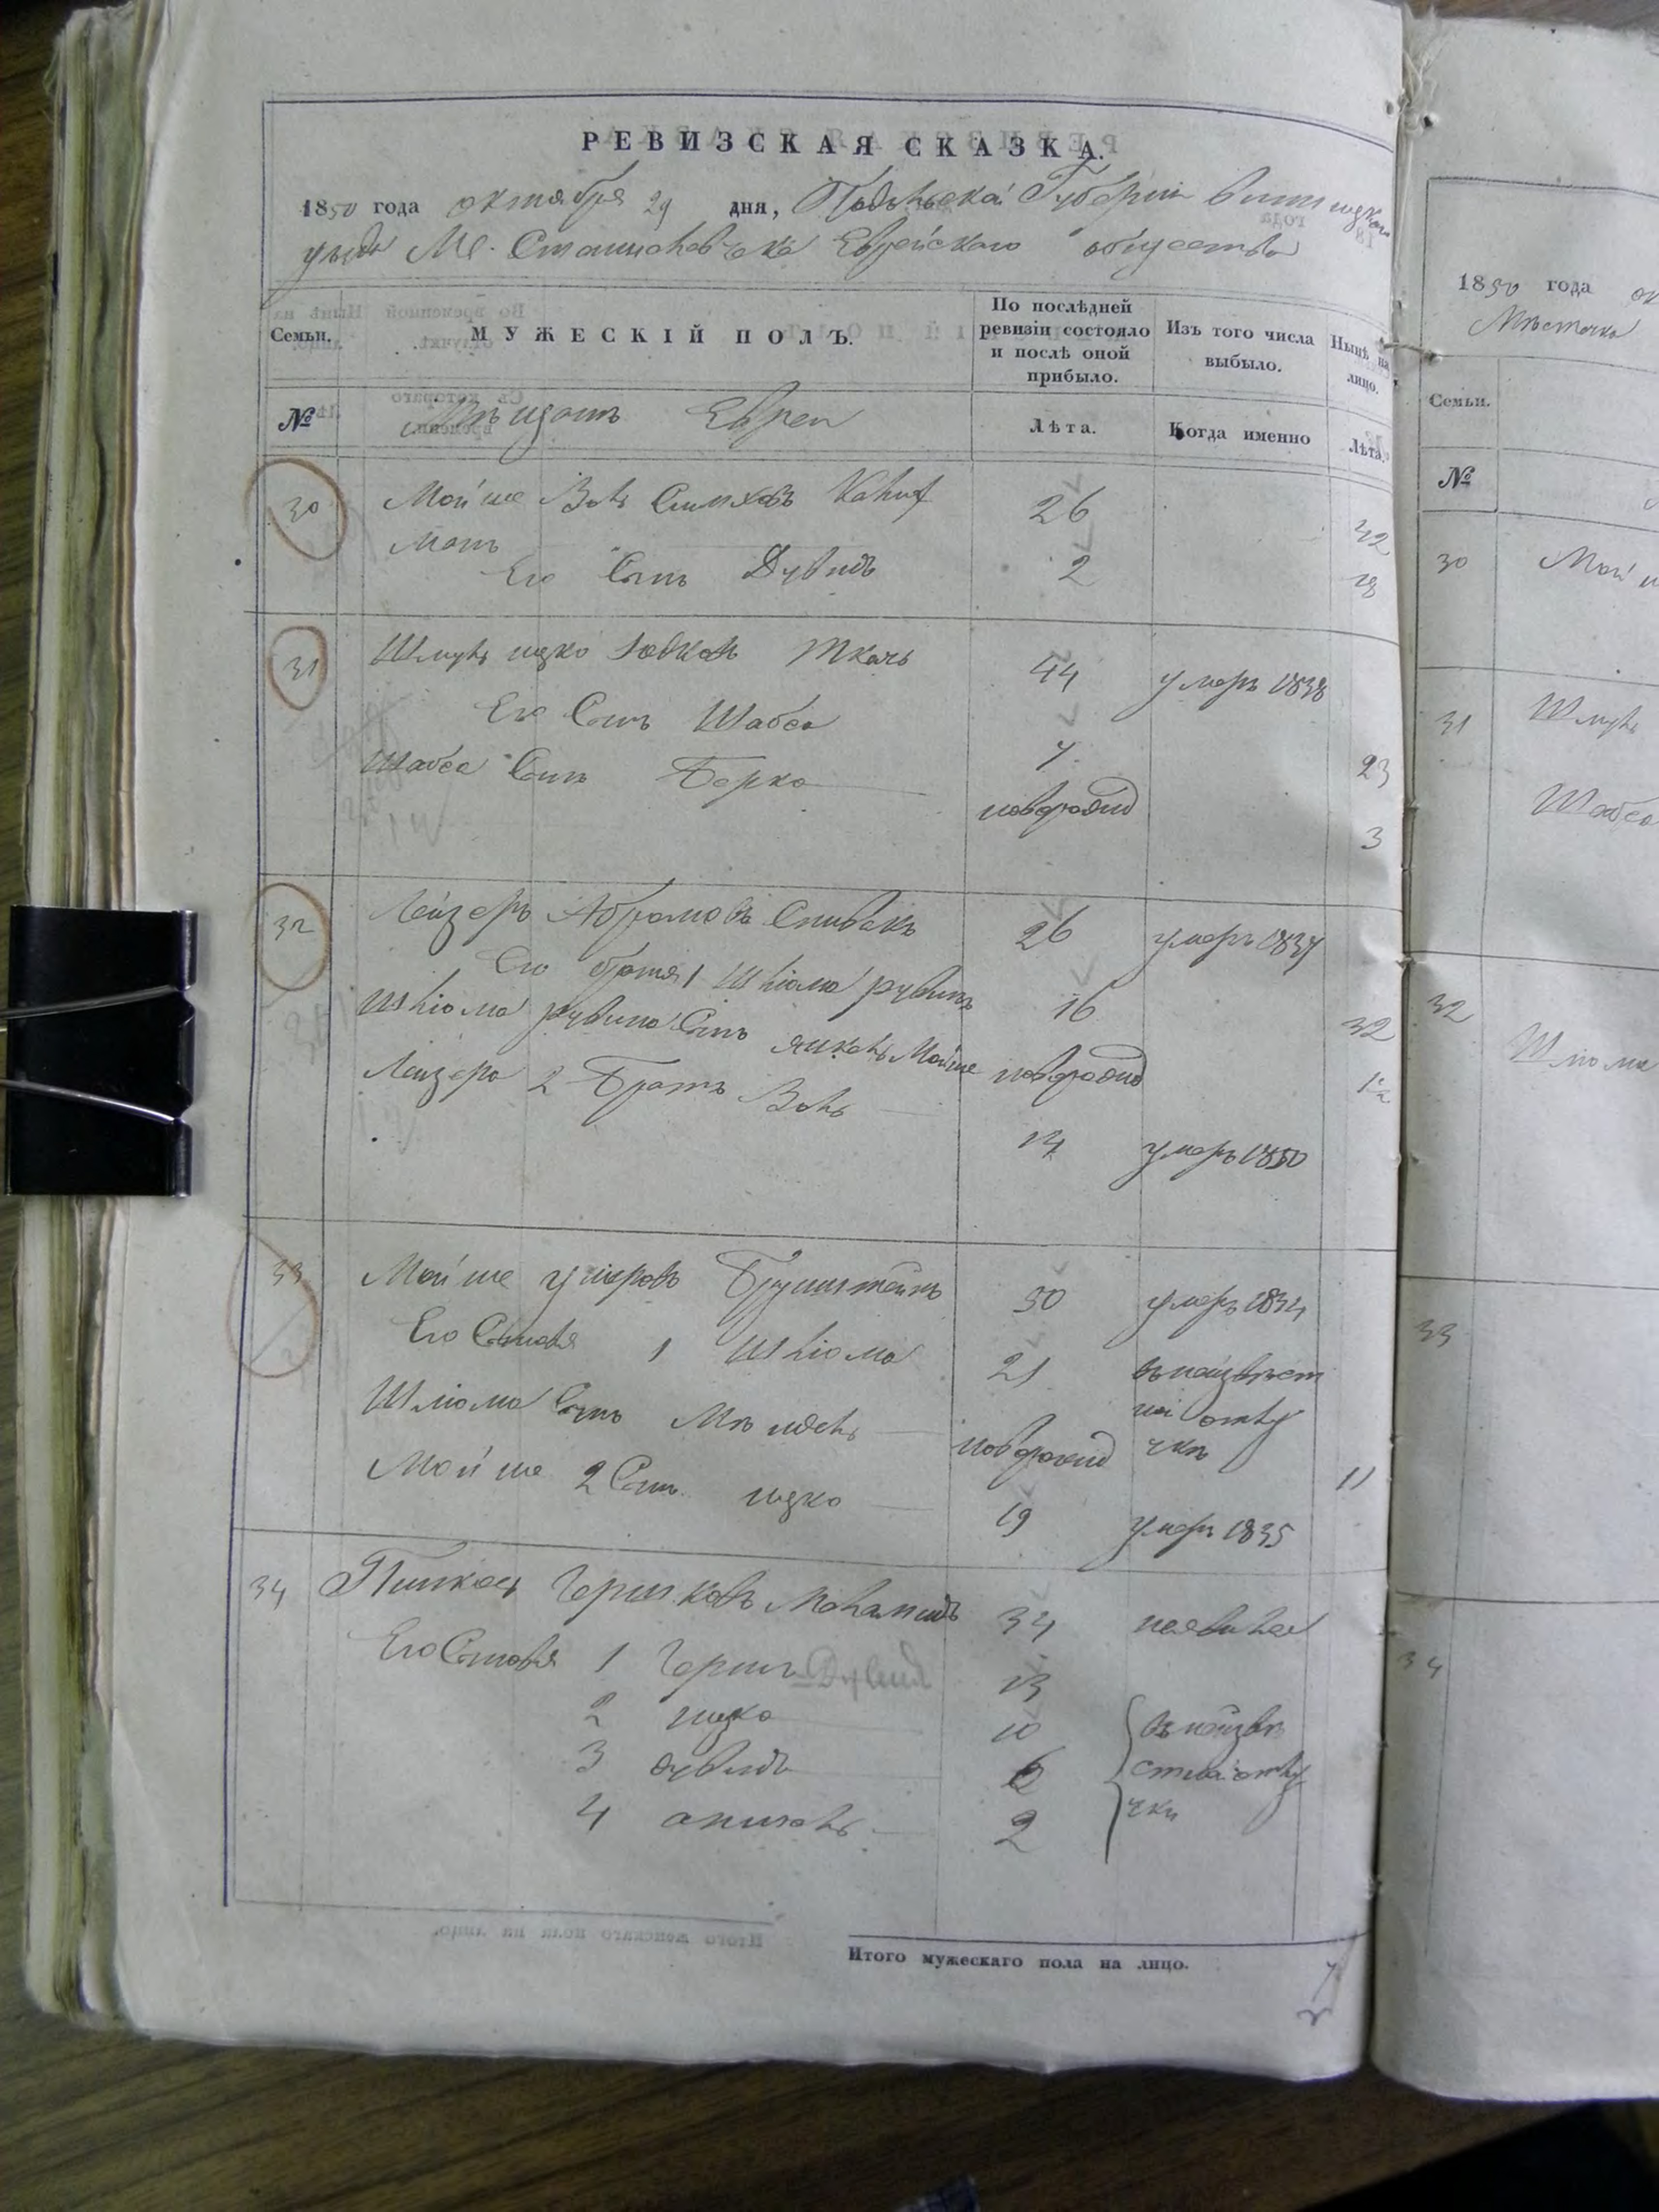 РЕВИЗСКАЯ СКАЗКА.
1850 года октября 29 дня, Подольской Губернии Винницкого
уезда М. Станиславчика Еврейского общества
Семьи. МУЖЕСКІЙ ПОЛЪ. По послѣдней ревизіи состояло и послѣ оной прибыло. Изъ того числа выбыло. Нынѣ на лицо.
№ Мещане Евреи Лѣта. Когда именно Лѣта.
30 Мойше Волъ Симховъ 26 42
Его Сынъ Дувидъ 2 18
31 Шмуль ицко Іовковъ Ткачъ 44 умеръ 1838
Его Сынъ Шабса 7 23
Шабса Сынъ Берко новорожд 3
32 Лейзеръ Абрамовъ Спивакъ 26 умеръ 1837
Его братья 1 Шліома рувинъ 16 32
Шліома рувина Сынъ янкель Мойше новорожд 1½
Лейзера 2 Братъ Волъ 14 умеръ 1850
33 Мойше ушеровъ Брунштейнъ 50 умеръ 1834
Его Сыновья 1 Шліома 21 въ неизвест
ной отлу
чке
Шліома Сынъ Мендель новорожд 11
Мойше 2 Сынъ ицко 19 умеръ 1835
34 Пинкас Гершковъ Меламидъ 34
Его Сыновья 1 Гершъ Дувид 13
2 ицко 10 въ неизве
3 дувидъ 6 стной отлу
4 аншель 2 чки
Итого мужескаго пола на лицо. 7
1850 года ок
Мѣстечка
Семьи.
№
30 Мой
31 Шмуль
Шабса
32 Шліома
33
34